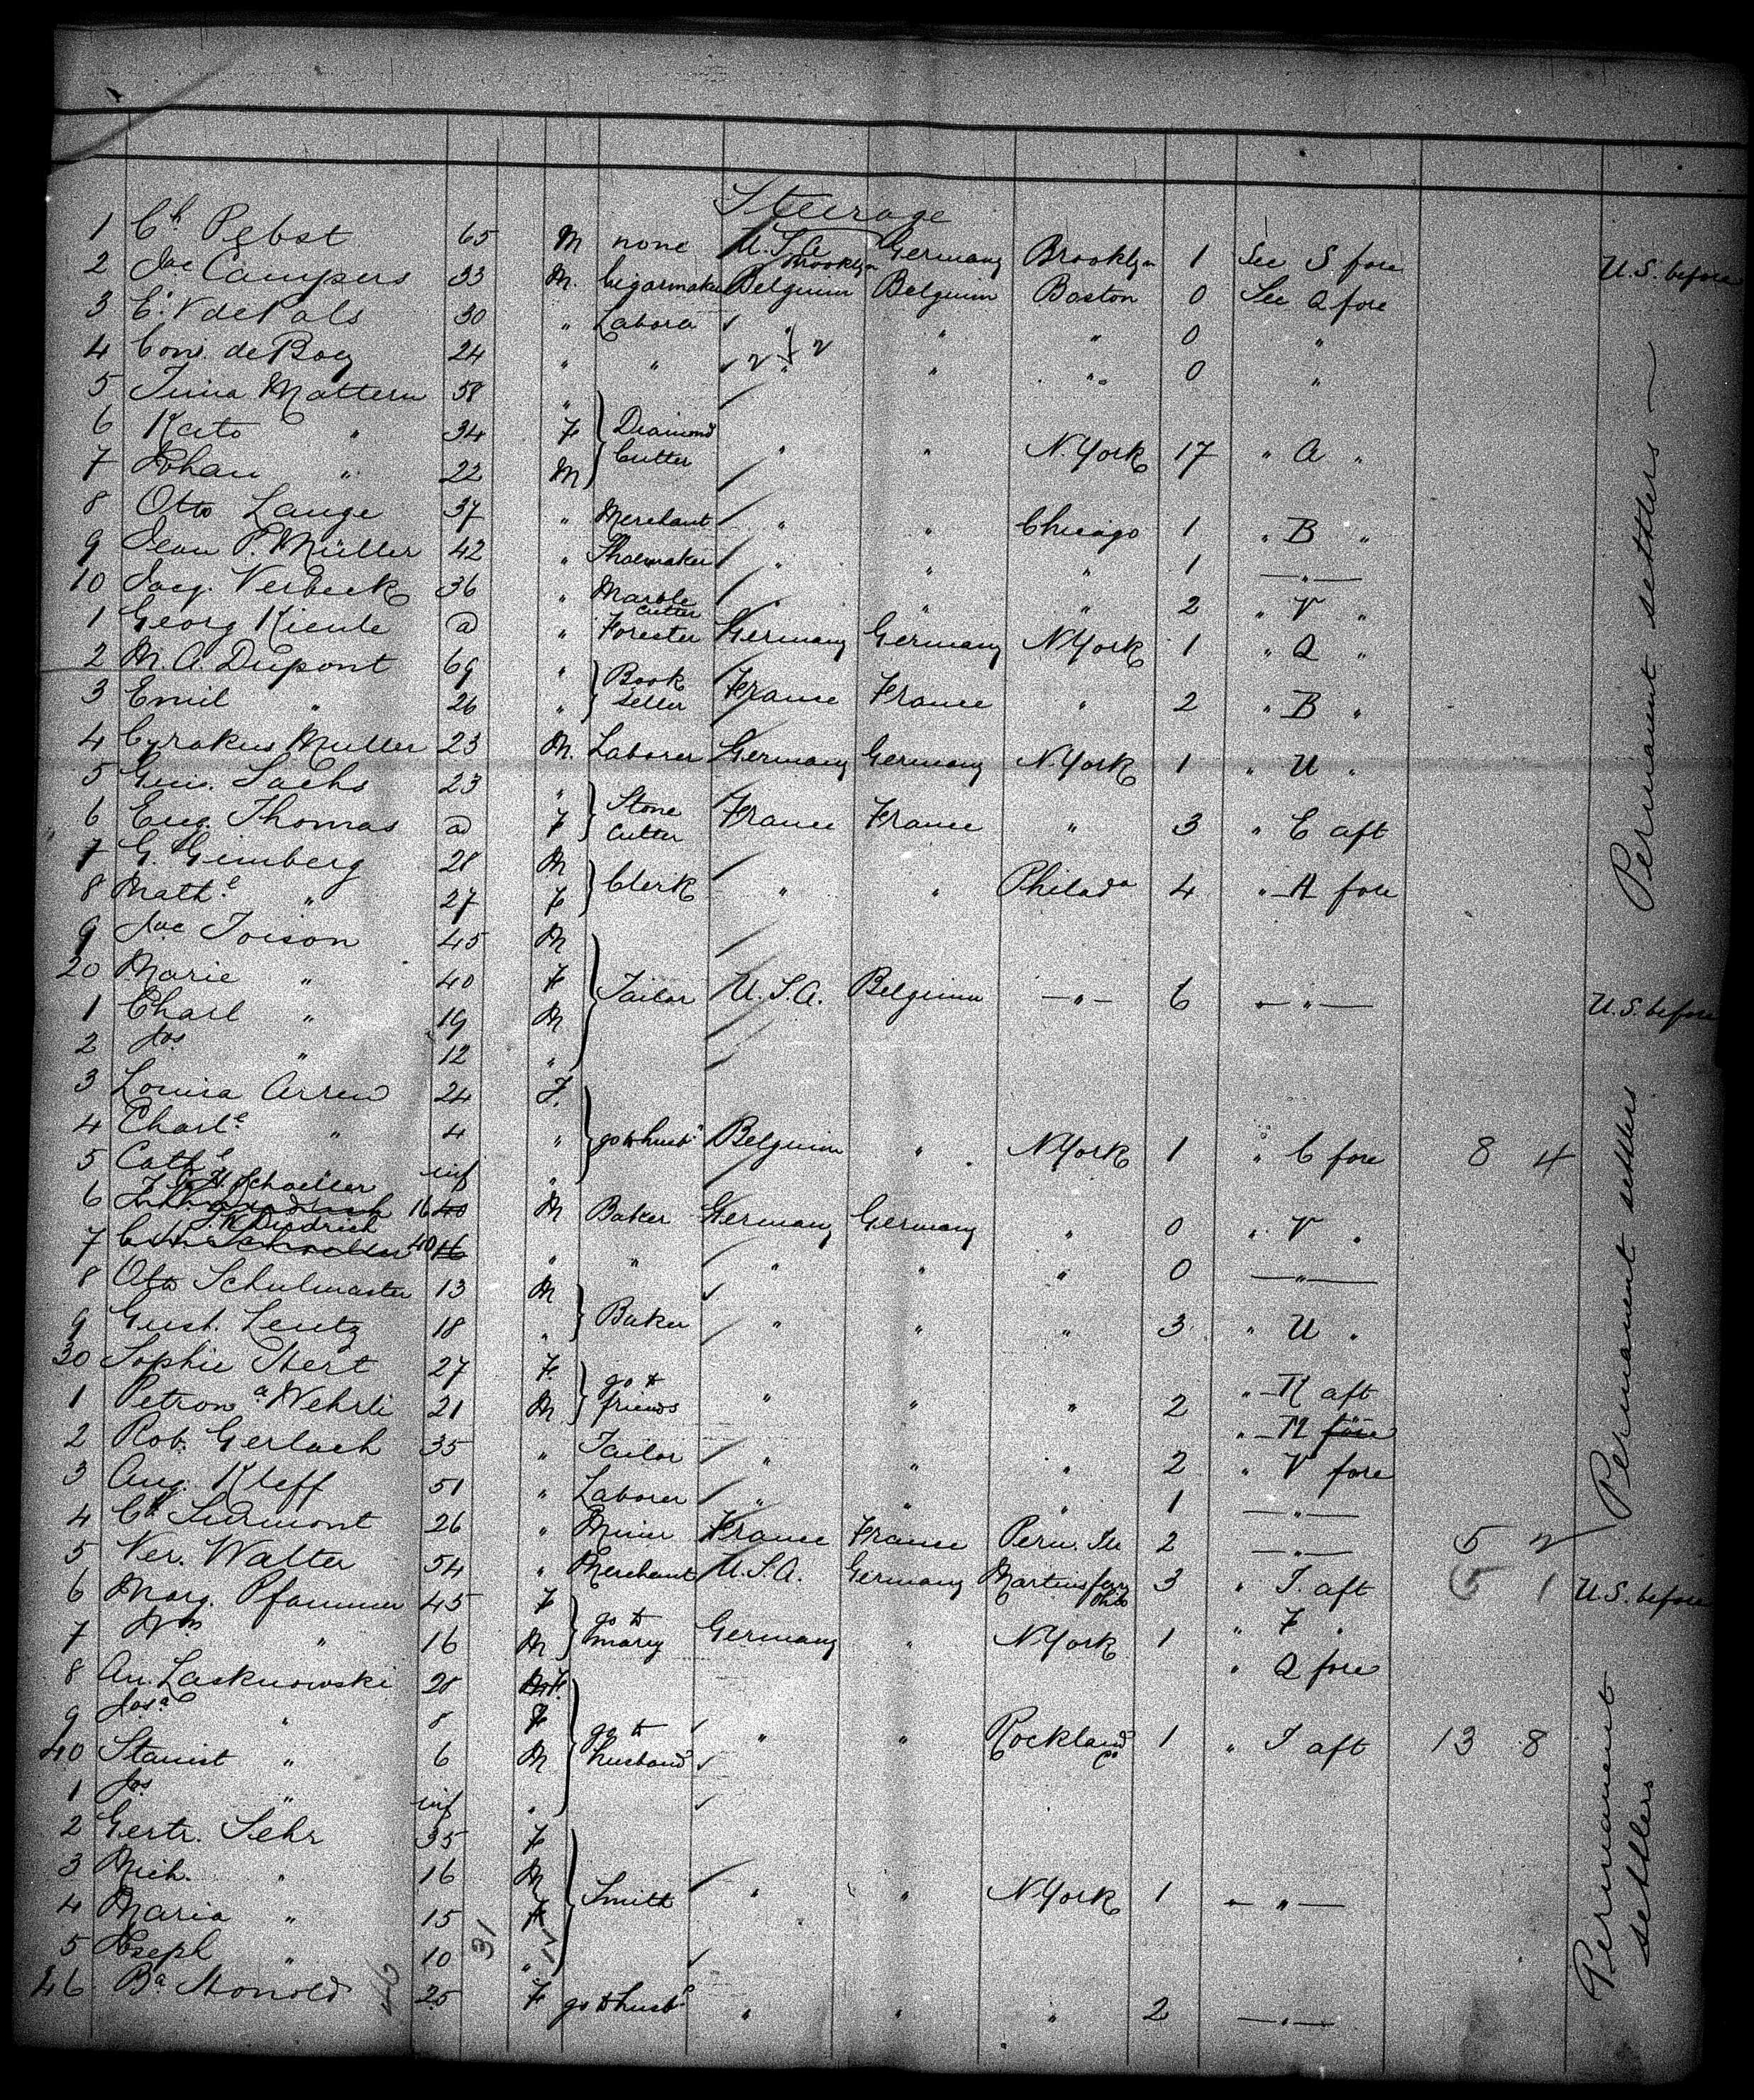 Steerage
1 Ch Pebst 65 M none U.S.A. Brooklyn Germany Brooklyn 1 See S fore U.S. before
2 Jac Campers 33 M. Cigarmaker Belguim Belguim Boston 0 See Q fore
3 30 " Labora " " " 0 "
4 24 " " " " " 0 "
5 Mattern 58 "
6 Kato " 34 F Diamond Cutter " " N.York 17 " A "
7 Johan " 22 M
8 Otto Lange 37 " Merchant " " Chicago 1 " B "
9 Jean P. Müller 42 " Shoemaker " " " 1 — " —
10 Jacq. Verbeck 36 " Marble Cutter " " " 2 " V "
1 Georg Kienle a " Forester Germany Germany N.York 1 " Q "
2 M. A. Dupont 69 " Book
3 Emil " 26 " Seller France France " 2 " B "
4 Cyrakus Muller 23 M. Laborer Germany Germany N.York 1 " U "
5 Sachs 23 "
6 Eug. Thomas a F Stone Cutter France France " 3 " C aft
7 G. Gimberg 28 M
8 Math.e " 27 F Clerk " " Philada 4 " A fore
9 Jac Toison 45 M
20 Marie " 40 F Tailor U.S.A. Belguim — " — 6 — " — U.S. before
1 Charl " 19 M
2 Jos " 12 "
3 Louisa Arren 24 F.
4 Charl.e " 4 " go to husb.d Belguim " N.York 1 " C fore 8 4
5 Cath.e inf "
6 H. Schoeller 16 40 M Baker Germany Germany " 0 " V "
7 Diedrich 40 16 " " " " " 0 — " —
8 Otto Schulmaster 13 M
9 Gust. Lentz 18 " Baker " " " 3 " U "
30 Sophie Ebert 27 F. go to " K aft
1 Petron.a Wehrli 21 M friends " " " 2 " M fore
2 Rob. Gerlach 35 " Tailor " " " 2 " V fore
3 Aug. Kleff 51 " Laborer " " " 1 — " —
4 Ch Surmont 26 " Miner France France Peru. Ill 2 — " — 5 2
5 Ver. Walter 54 " Merchant U.S.A. Germany Martinsferry Ohio 3 " T. aft 5 1 U.S. before
6 Marg. Pfammer 45 F go to " F "
7 Wm " 16 M marry Germany " N.York 1 " Q fore
8 An. Lasknowski 28 M F.
9 Jos.a " 8 F go to husband " " Rockland Co 1 " T aft 13 8
40 Stanist " 6 M
1 Jos " inf "
2 Gertr. Sehr 35 F
3 Mich. " 16 M Smith " " N.York 1 — " —
4 Maria " 15 F
5 Joseph " 10 "
46 Ba 25 F go to husb.d " " " 2 — " —
46 31
Permanent settlers
Permanent settlers
Permanent settlers